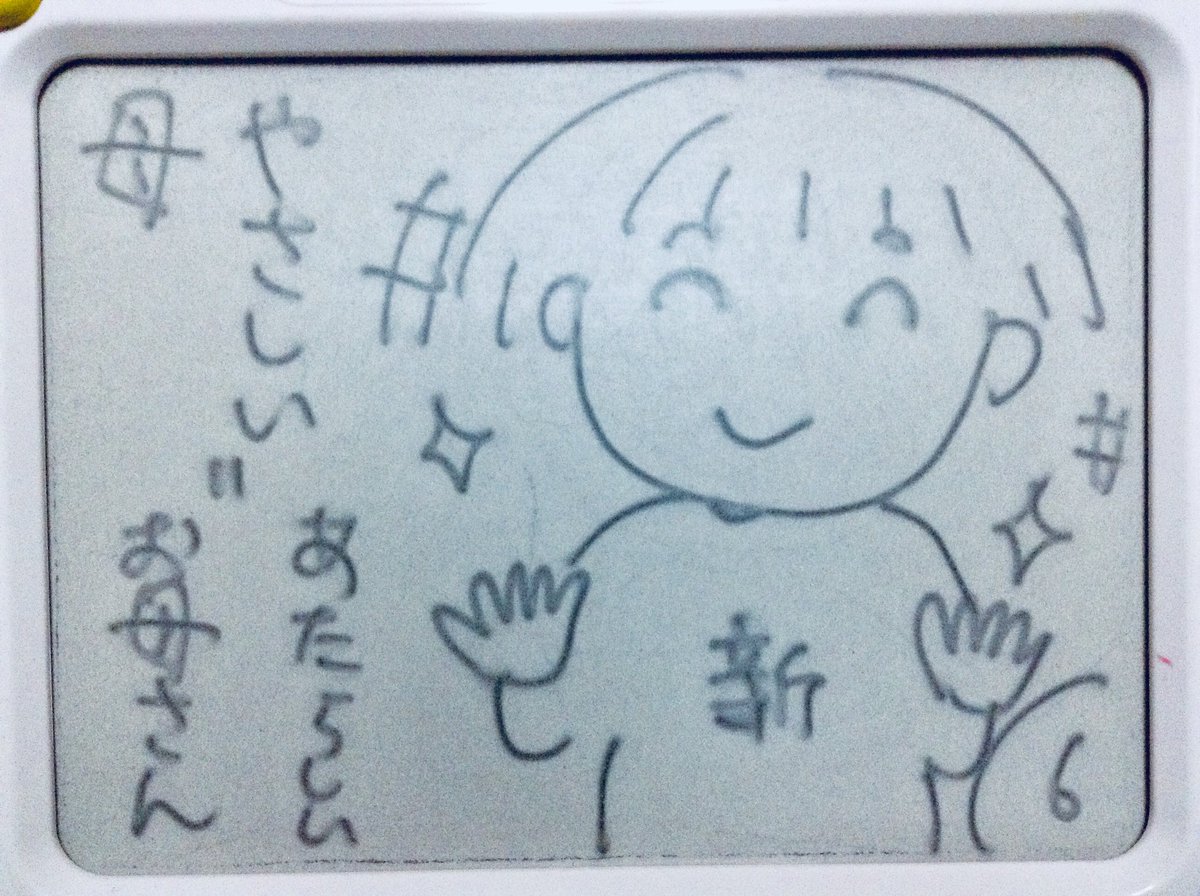 やさしい
母
＝
あたらしい
お母さん
新
6